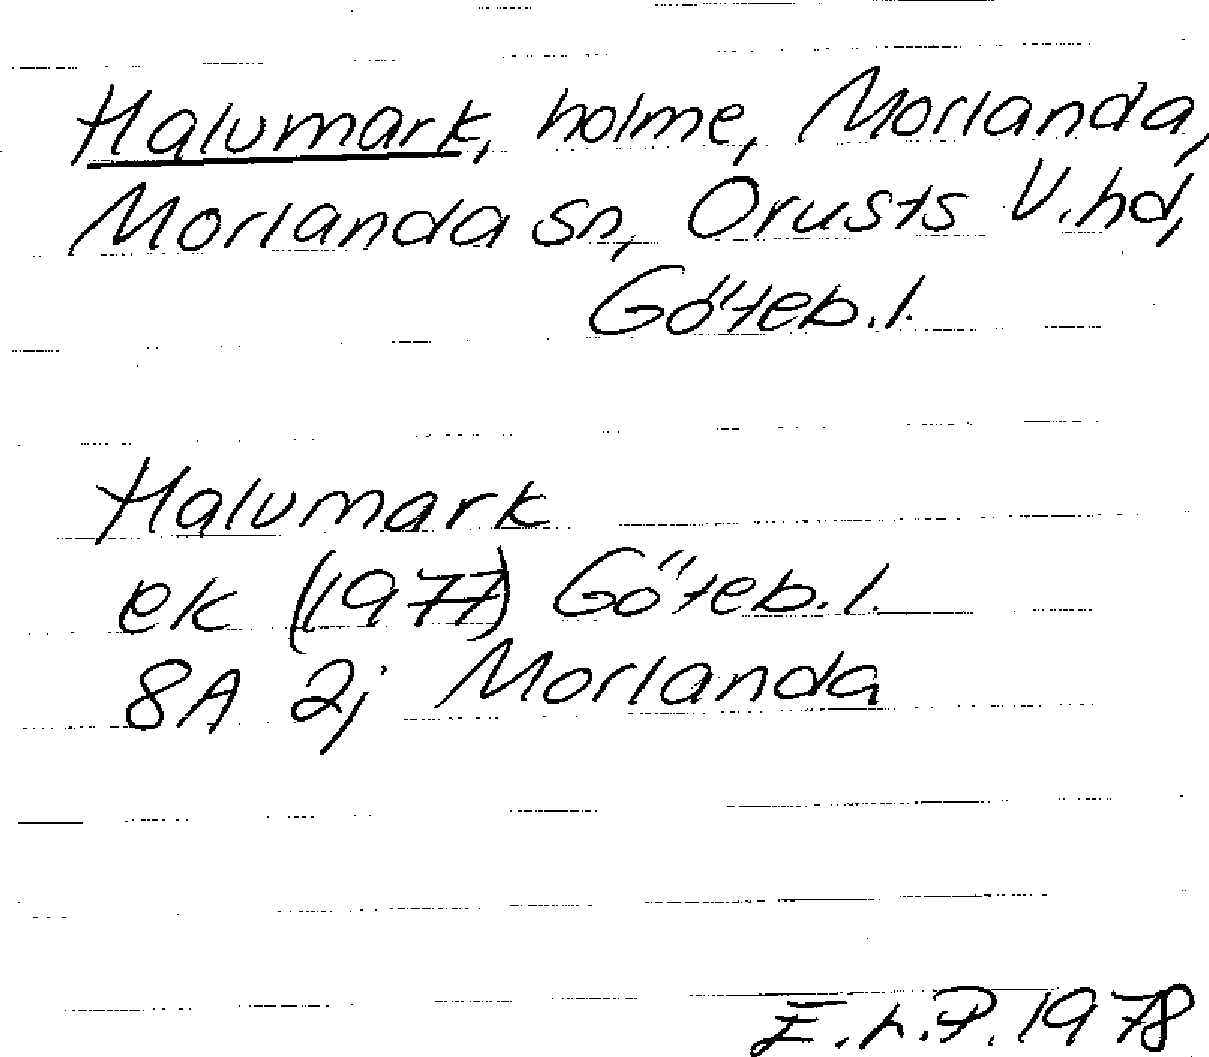 Halvmark, holme, Morlanda,
Morlanda sn, Orusts V. hd,
Göteb. l.
Halvmark
ek (1977) Göteb. l.
8A 2j Morlanda
E.L.P. 1978